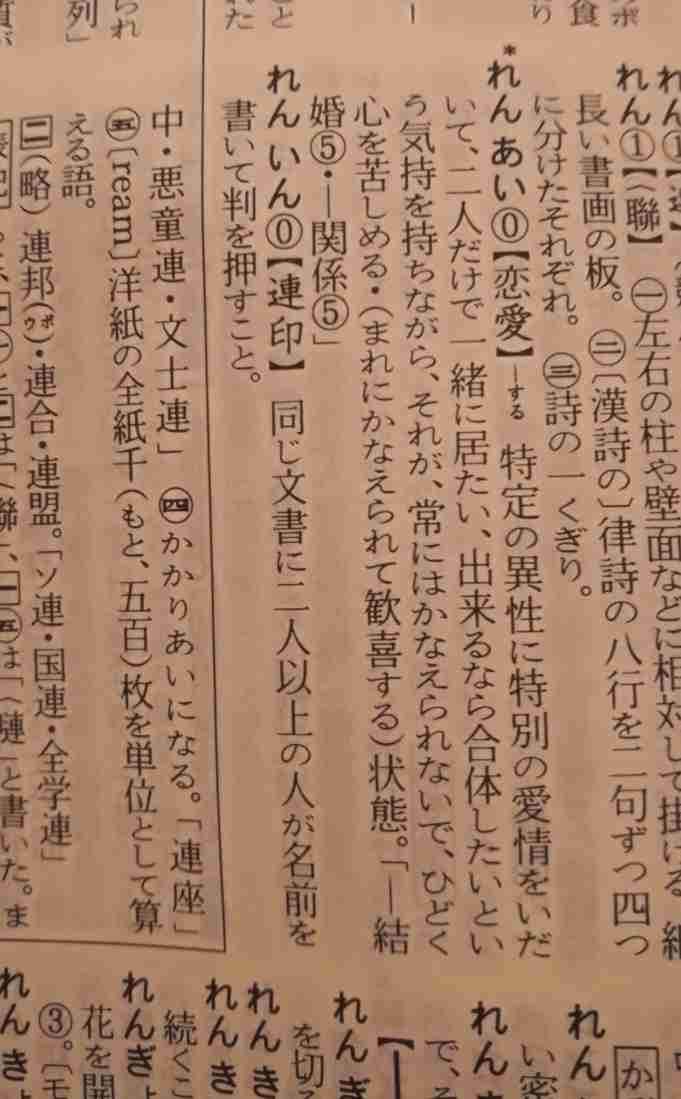 れん①【(聯】 ㊀左右の柱や壁面などに相対して掛ける
長い書画の板。 ㊁〔漢詩の〕律詩の八行を二句ずつ四つ
に分けたそれぞれ。 ㊂詩の一くぎり。
*れんあい⓪【恋愛】―する 特定の異性に特別の愛情をいだ
いて、二人だけで一緒に居たい、出来るなら合体したいとい
う気持を持ちながら、それが、常にはかなえられないで、ひどく
心を苦しめる・(まれにかなえられて歓喜する)状態。「―結
婚⑤・―関係⑤」
れんいん⓪【連印】 同じ文書に二人以上の人が名前を
書いて判を押すこと。
中・悪童連・文士連」 ㊃かかりあいになる。「連座」
㊄〔ream〕洋紙の全紙千(もと、五百)枚を単位として算
える語。
二(略) 連邦(ウボ)・連合・連盟。「ソ連・国連・全学連」
は「(聯」、一㊄は「(嗹」と書いた。ま
い密
れん
で、そ
れんぎ
を切る
れんき
れんき
続くこ
れんぎょ
花を開
③。〔モ
れんきょ